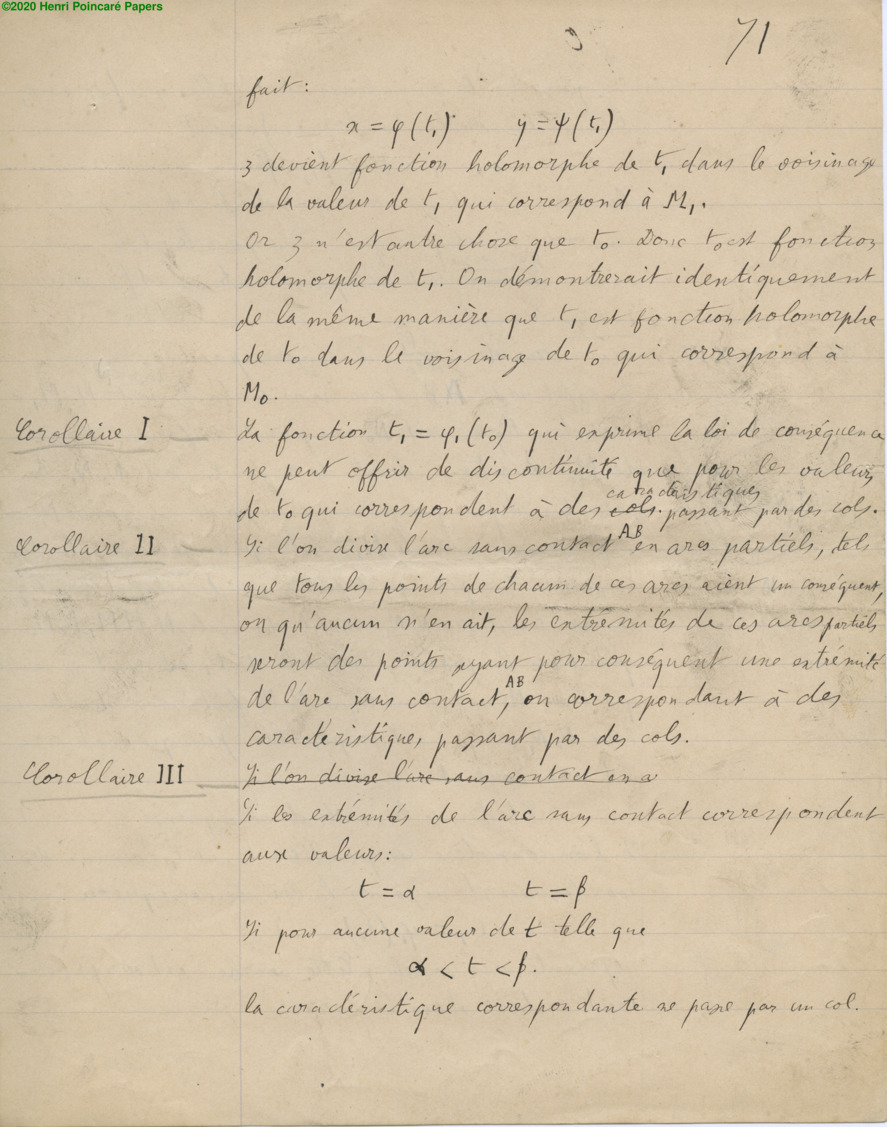 ©2020 Henri Poincaré Papers
71
fait:
x = φ(t₁) y = ψ(t₁)
z devient fonction holomorphe de t₁ dans le voisinage
de la valeur de t₁ qui correspond à M₁.
Or z n'est autre chose que t₀. Donc t₀ est fonction
holomorphe de t₁. On démontrerait identiquement
de la même manière que t₁ est fonction holomorphe
de t₀ dans le voisinage de t₀ qui correspond à
M₀.
Corollaire I La fonction t₁ = φ₁(t₀) qui exprime la loi de conséquence
ne peut offrir de discontinuité que pour les valeurs
caractéristiques
de t₀ qui correspondent à des cols. passant par des cols.
Corollaire II Si l'on divise l'arc sans contact AB en arcs partiels, tels
que tous les points de chacun de ces arcs aient un conséquent,
ou qu'aucun n'en ait, les extrémités de ces arcs partiels
seront des points ayant pour conséquent une extrémité
de l'arc sans contact, AB ou correspondant à des
caractéristiques passant par des cols.
Corollaire III Si l'on divise l'arc sans contact en a
Si les extrémités de l'arc sans contact correspondent
aux valeurs:
t = α t = β
Si pour aucune valeur de t telle que
α < t < β.
la caractéristique correspondante ne passe par un col.